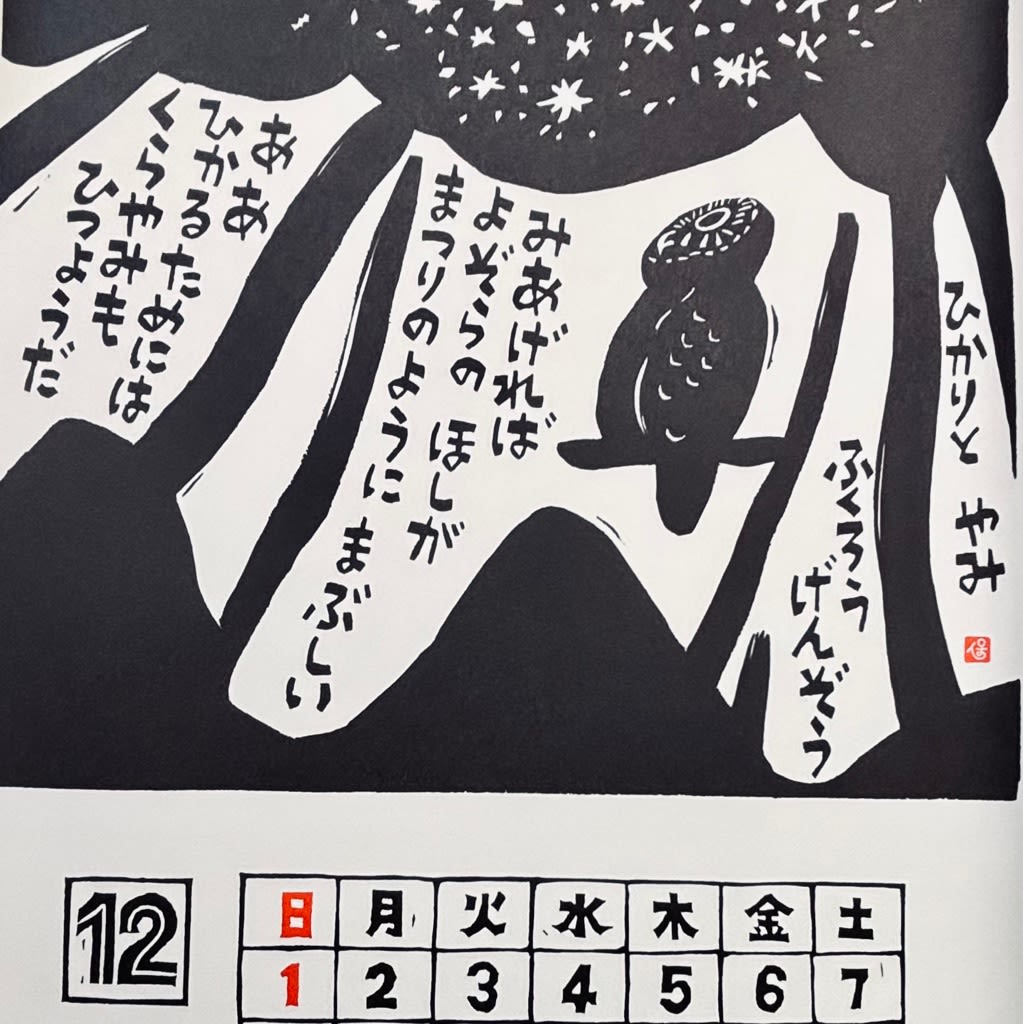 ひかりと やみ
ふくろう
げんぞう
みあげれば
よぞらの ほしが
まつりのように まぶしい
ああ
ひかるためには
くらやみも
ひつようだ
12
日 月 火 水 木 金 土
1 2 3 4 5 6 7